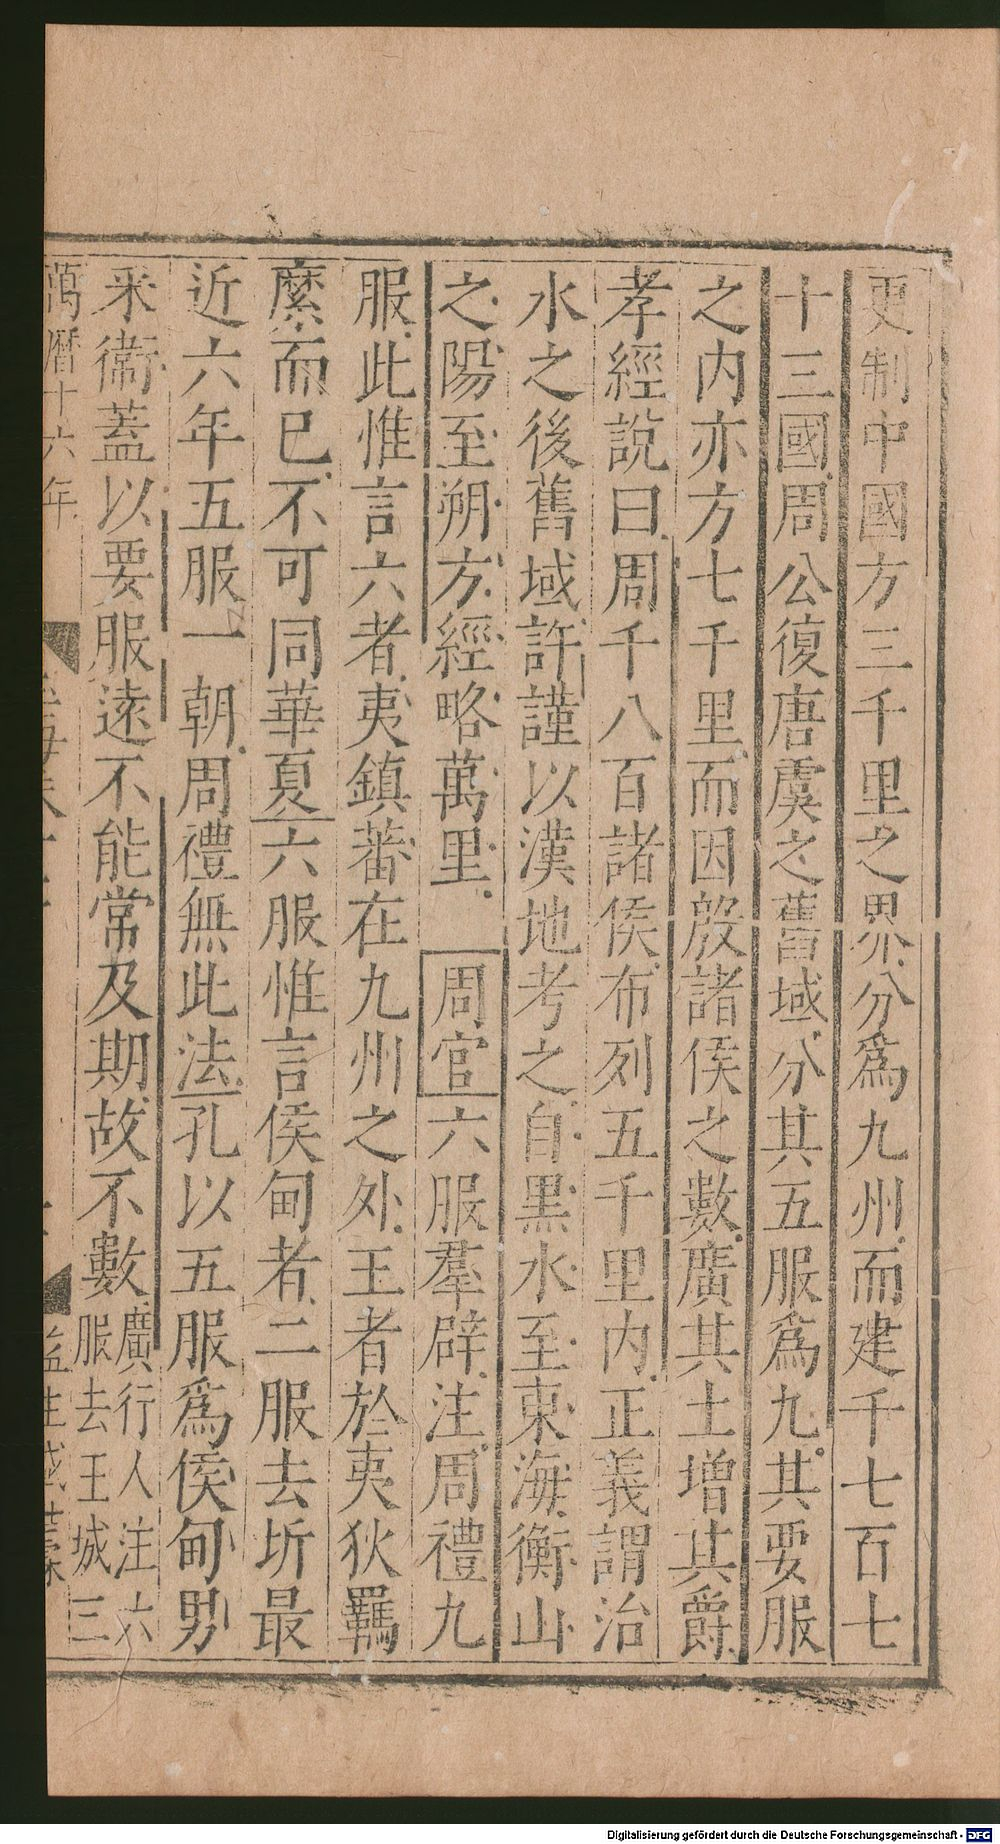 更制中國方三千里之界分爲九州而建千七百七
十三國周公復唐虞之舊域分其五服爲九其要服
之内亦方七千里而因殷諸侯之數廣其土增其爵
孝經說曰周千八百諸侯布列五千里内正義謂治
水之後舊域許謹以漢地考之自黒水至東海衡山
之陽至朔方經略萬里 周官六服羣辟注周禮九
服此惟言六者夷鎮蕃在九州之外王者於夷狄羈
縻而已不可同華夏六服惟言侯甸者二服去圻最
近六年五服一朝周禮無此法孔以五服爲侯甸男
采衞蓋以要服遠不能常及期故不數廣行人注六
服去王城三
萬曆十六年
Digitalisierung gefördert durch die Deutsche Forschungsgemeinschaft - DFG